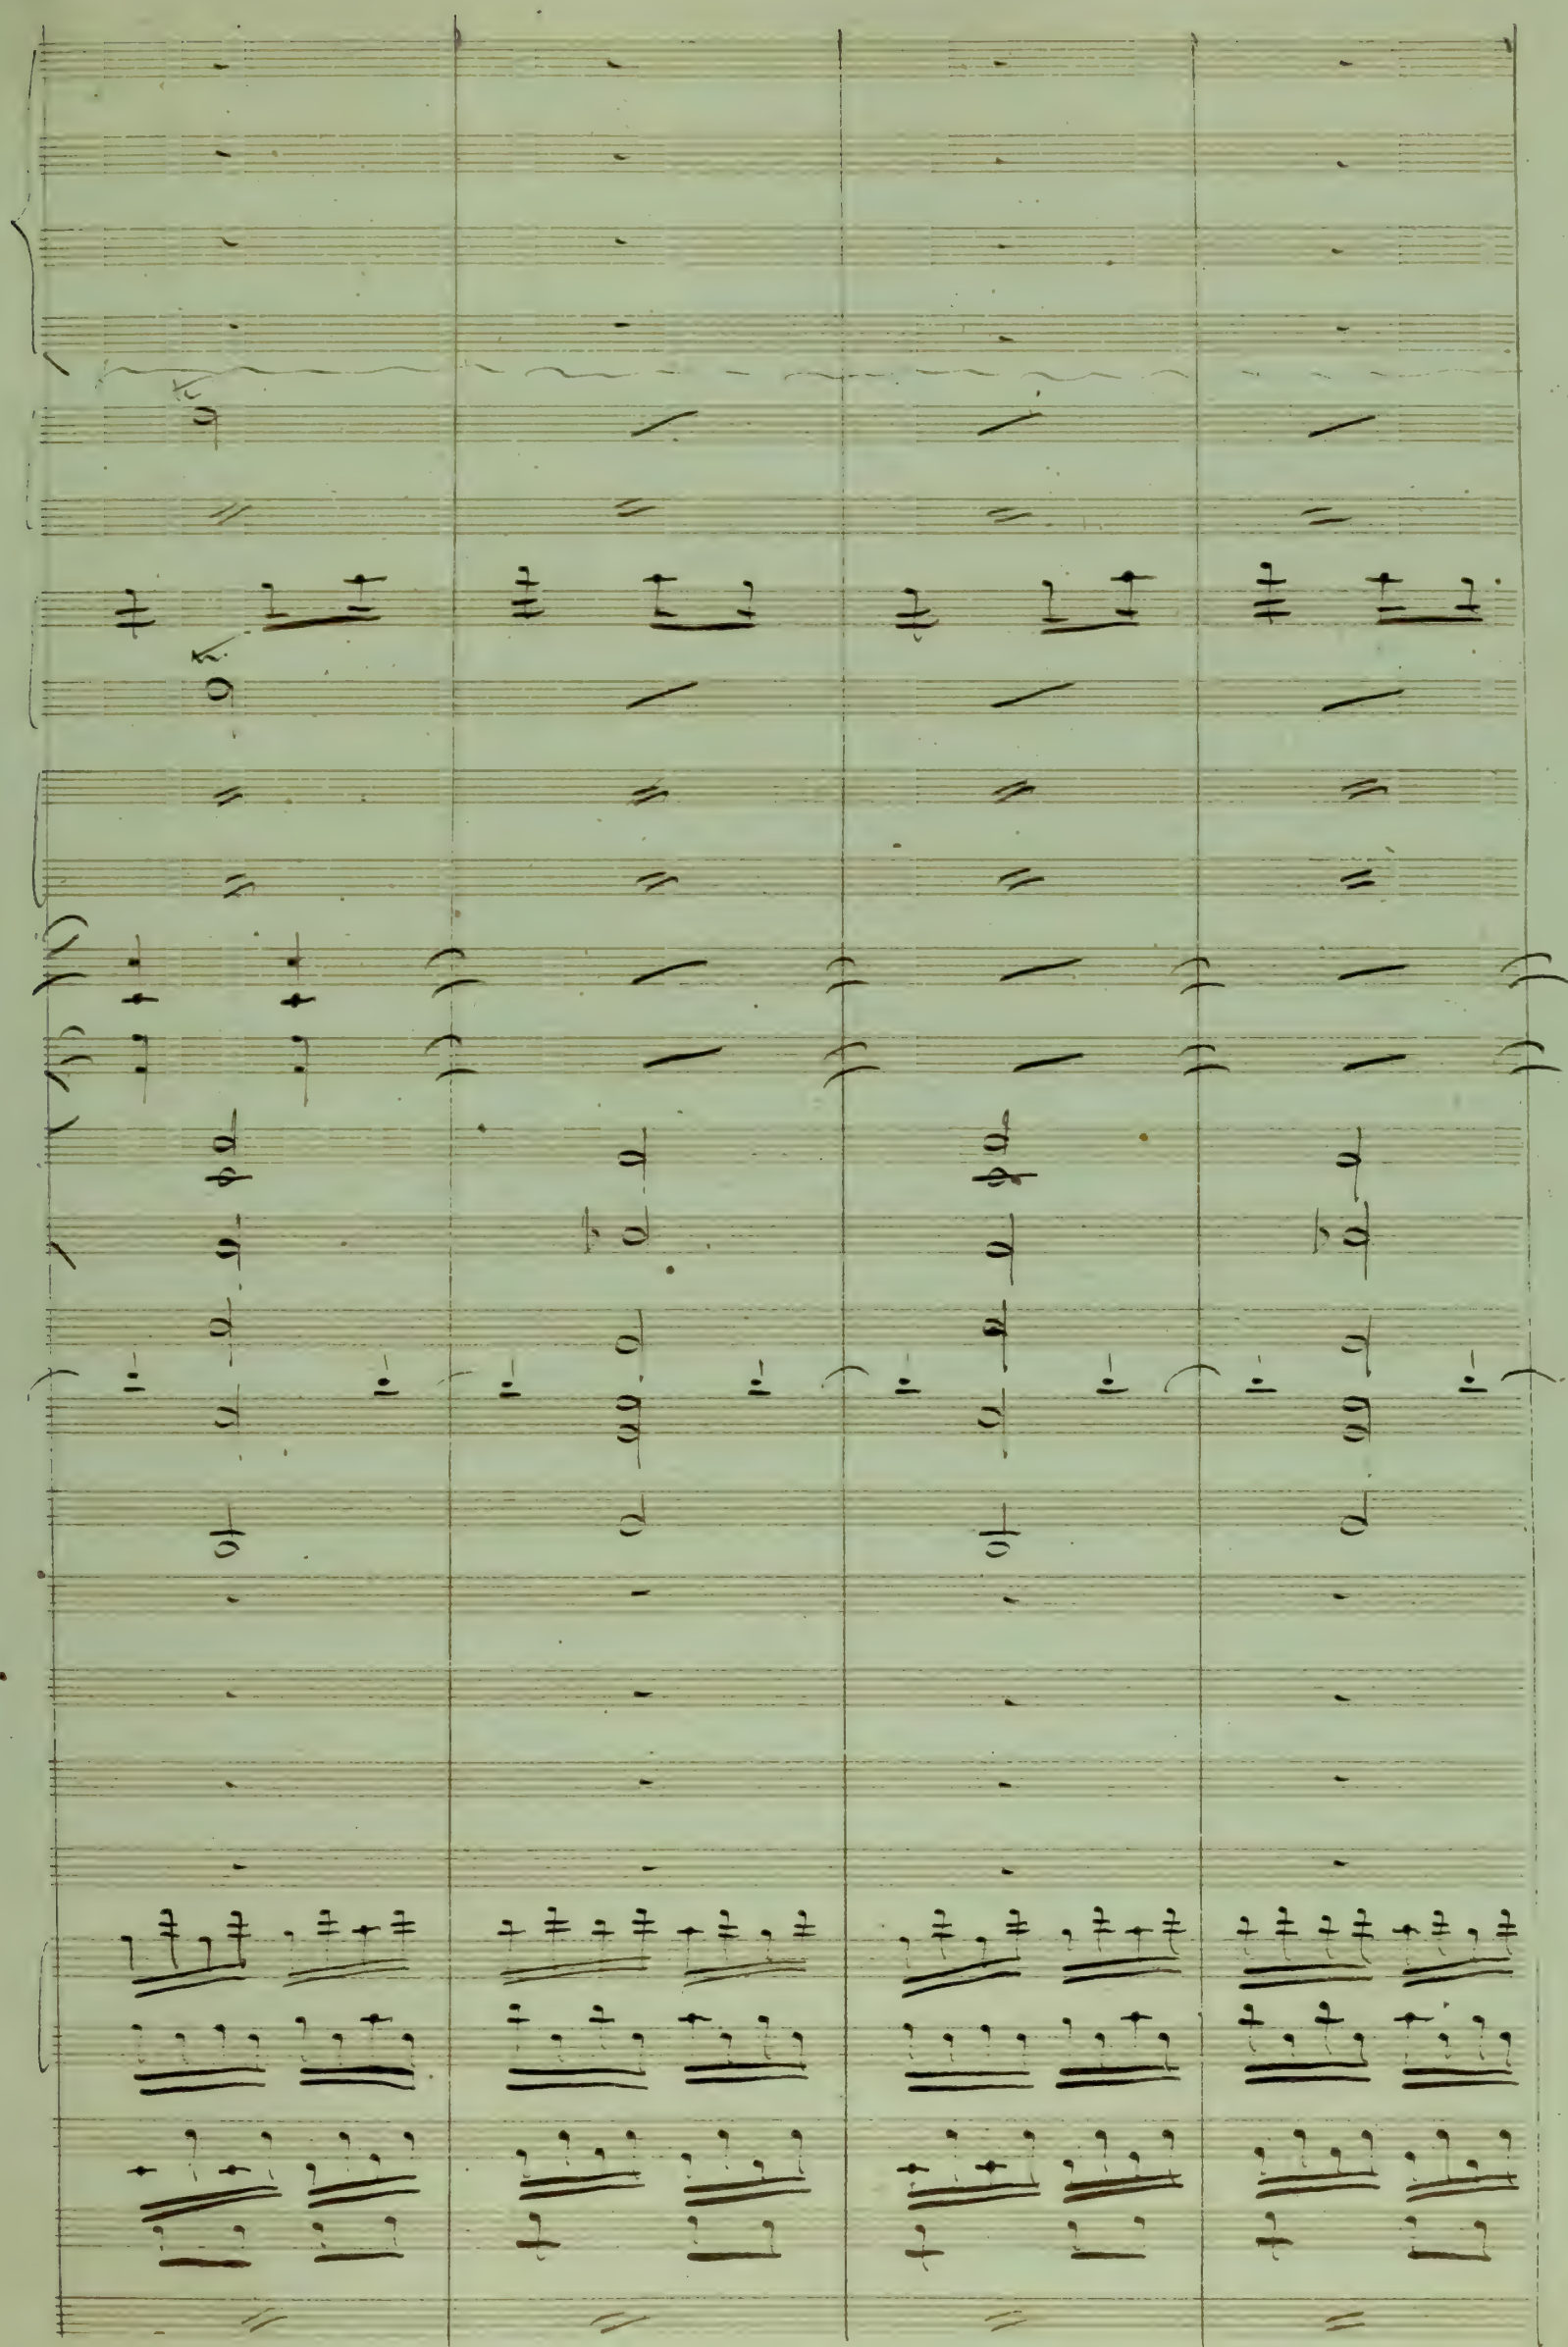 tr
tr